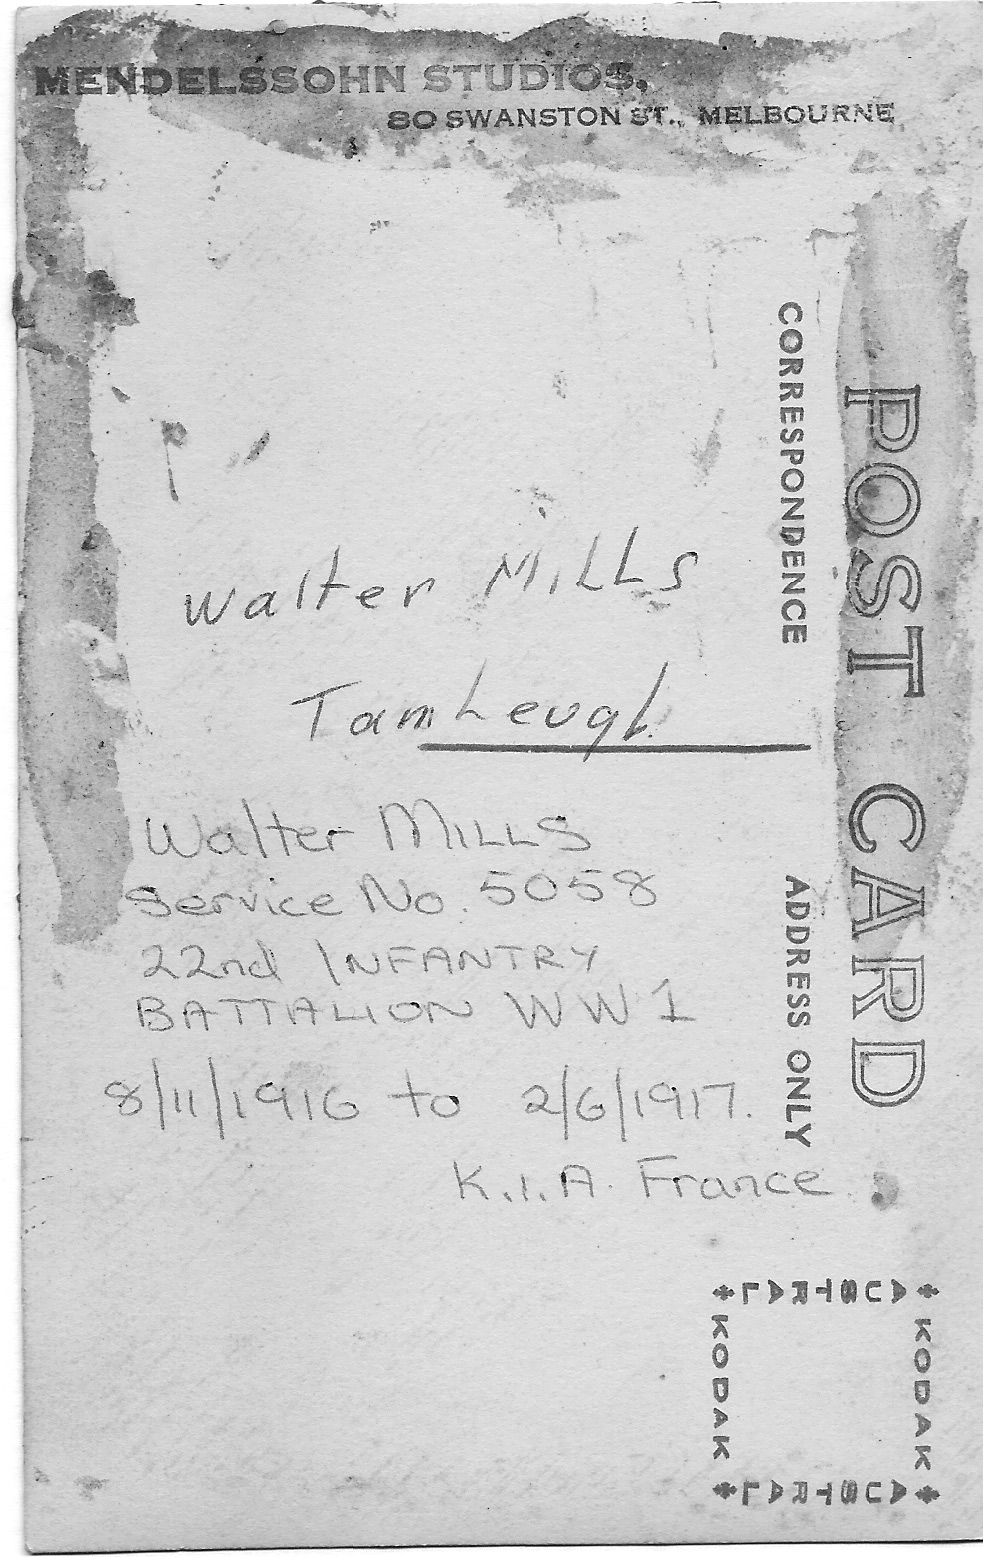 MENDELSSOHN STUDIOS.
80 SWANSTON ST., MELBOURNE
POST CARD
CORRESPONDENCE
ADDRESS ONLY
Walter MiLLs
TamLeugh
Walter MILLS
Service No. 5058
22nd INFANTRY
BATTALION WW1
8/11/1916 to 2/6/1917.
K.I.A. France
AUSTRAL
KODAK
KODAK
AUSTRAL